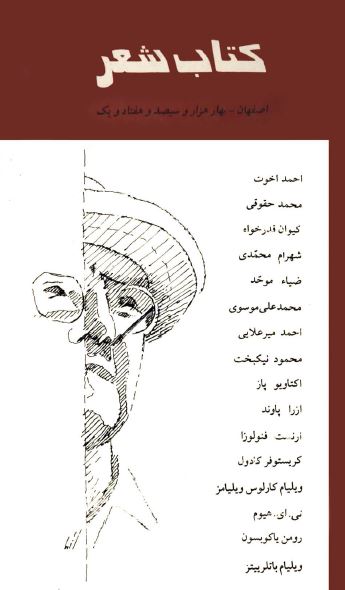 کتاب شعر
اصفهان - بهار هزار و سیصد و هفتاد و یک
احمد اخوت
محمد حقوقی
کیوان قدرخواه
شهرام محمّدی
ضیاء موحّد
محمدعلی موسوی
احمد میرعلایی
محمود نیکبخت
اکتاویو پاز
ازرا پاوند
ارنست فنولوزا
کریستوفر کادول
ویلیام کارلوس ویلیامز
تی. ای. هیوم
رومن یاکوبسون
ویلیام باتلرییتز